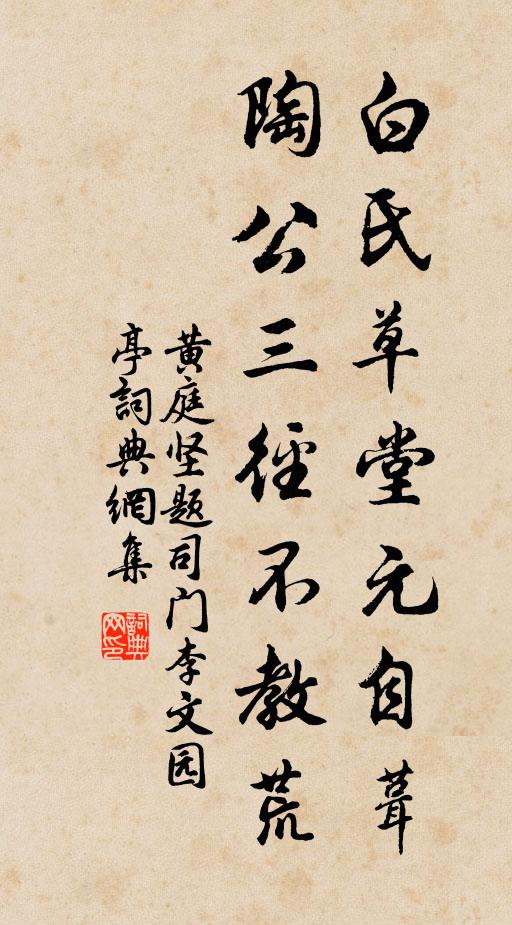 白氏草堂元自葺
陶公三徑不教荒
黄庭坚题司门李文园
亭詞典網集
詞典网印